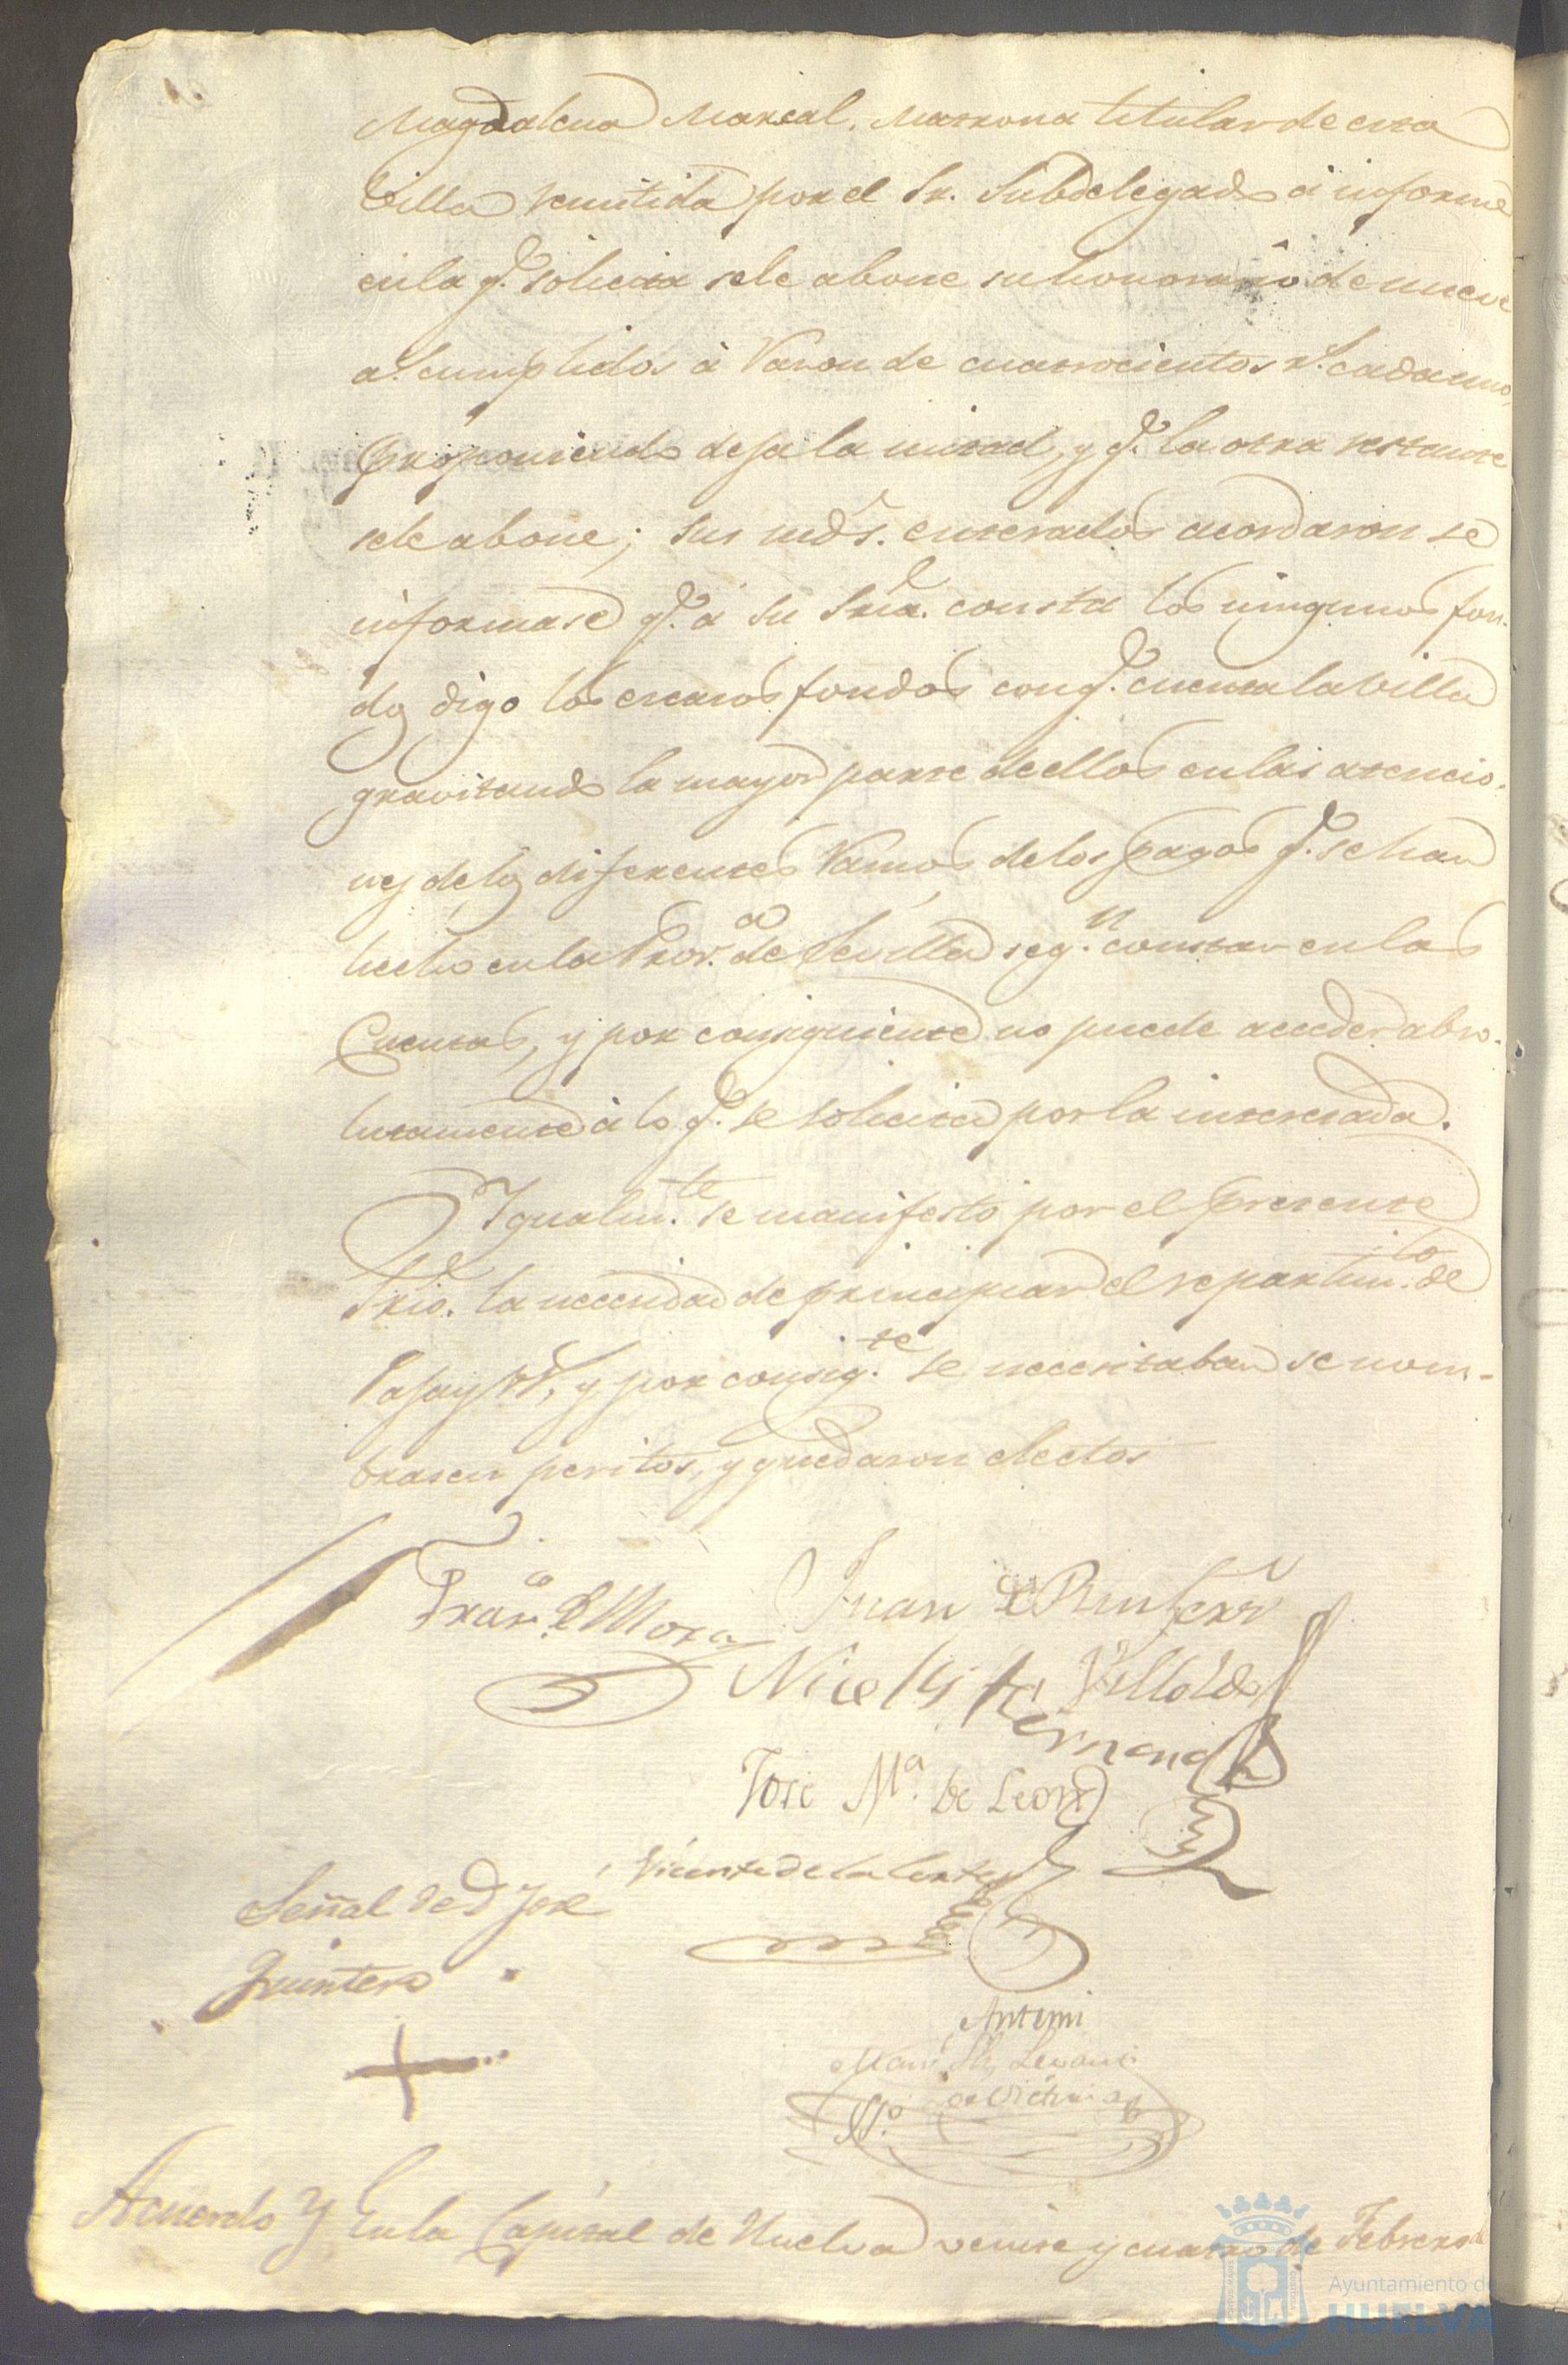 Magdalena Marcal, Matrona titular de esta
Villa remitida por el Sr. Subdelegado á informe
en la q.e solicita se le abone su honorario de nueve
a.s cumplidos á Razon de cuatrocientos r.s cada uno,
proponiendo deja la mitad, y q.e la otra restante
se le abone; sus mds. enterados acordaron se
informase q.e á su Sria. consta los ningunos fon-
dos digo los escasos fondos con q.e cuenta la Villa
gravitando la mayor parte de ellos en las atencio-
nes de los diferentes Ramos de los pagos q.e se han
hecho en la Prov.a de Sevilla seg.n constar en las
Cuentas, y por consiguiente no puede acceder abso-
lutamente á lo q.e se solicita por la interesada.
Igualm.te se manifestó por el presente
Srio. la necesidad de principiar el repartim.to de
Paja y, y por consig.te se necesitaban se nom-
brasen peritos, y quedaron electos
Fran.co de Mora Juan de Quintero
Nicolas Villalde
Hernandz
Jose M.a de Leon
Vicente de la Corte
Señal de D Jose
Quintero
+
Antemi
Srio
Acuerdo } En la Capital de Huelva veinte y cuatro de Febrero de
Ayuntamiento de
HUELVA